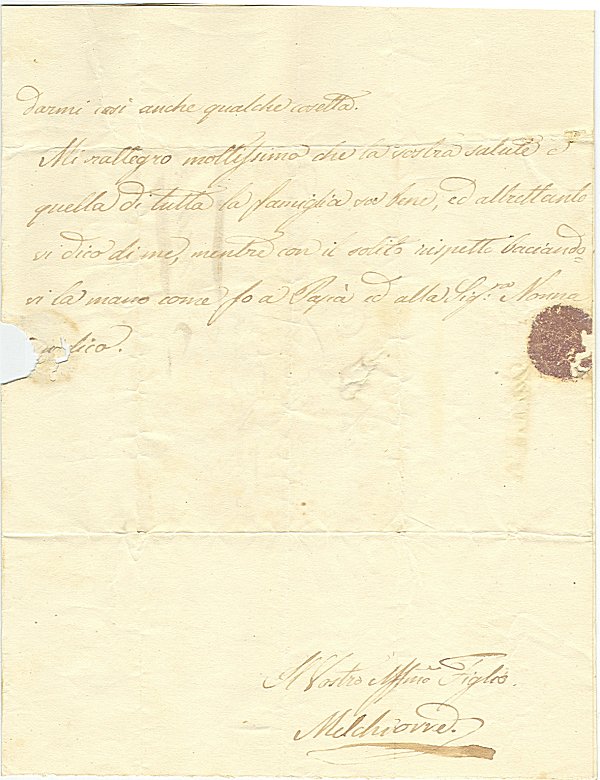 darmi così anche qualche cosetta.
Mi rallegro moltissimo che la vostra salute e
quella di tutta la famiglia va bene, ed altrettanto
vi dico di me, mentre con il solito rispetto baciando=
vi la mano come fo a Papà ed alla Sig.ra Nonna
dico.
Il Vostro Affmo Figlio.
Melchiorre.